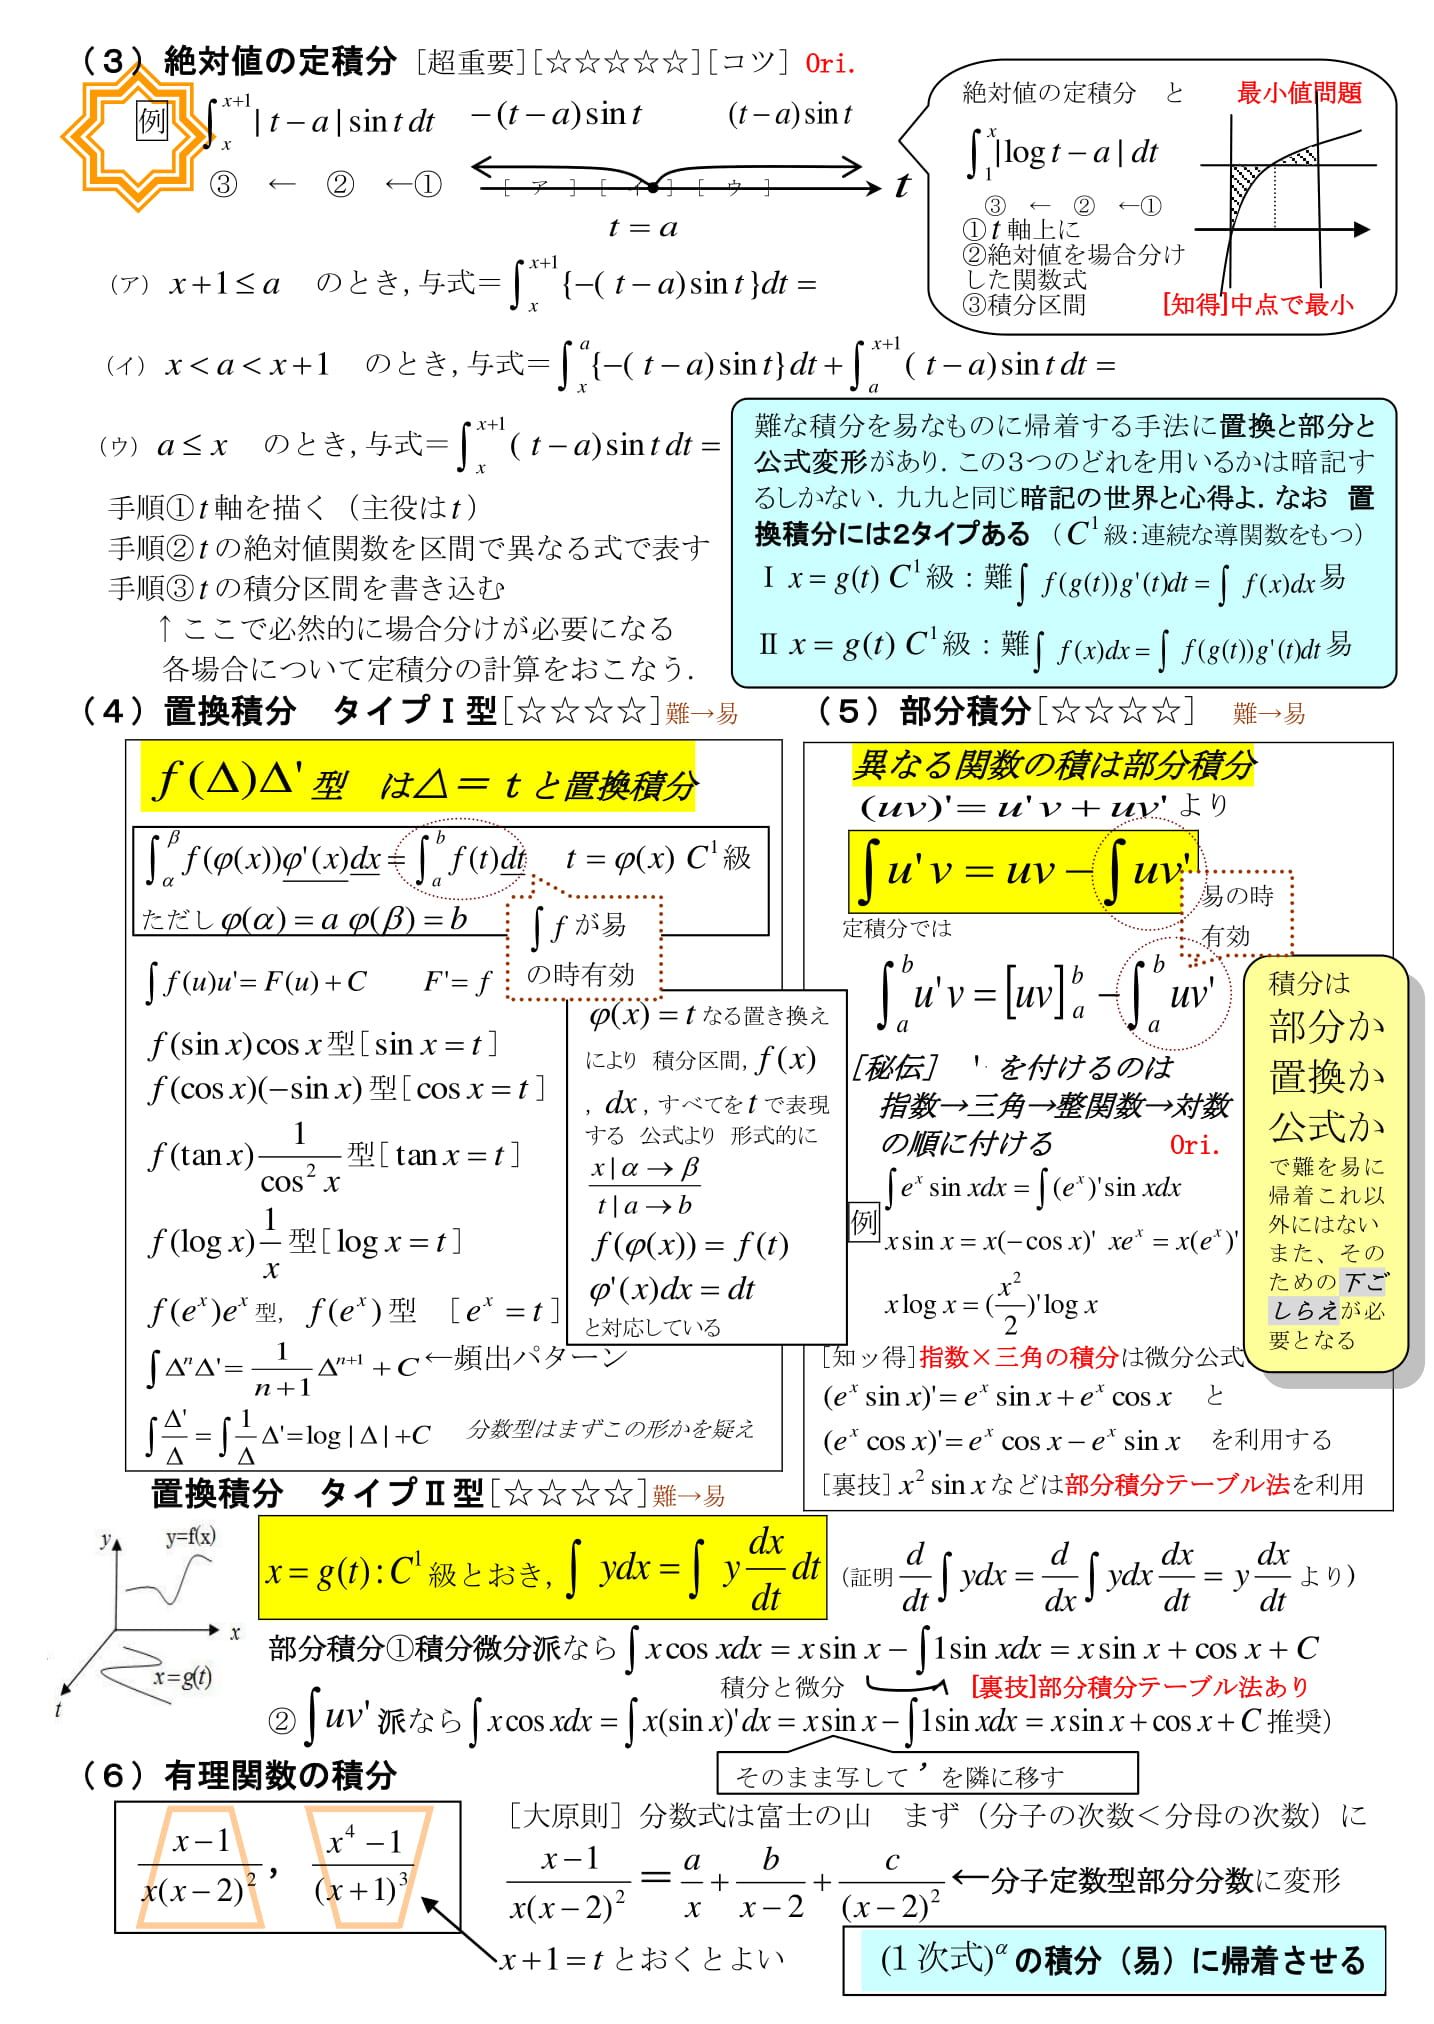 （３）絶対値の定積分［超重要］［☆☆☆☆☆］［コツ］ Ori.
例 ∫_x^{x+1} | t − a | sin t dt
−(t − a) sin t　(t − a) sin t
③ ← ② ←①
［ ア ］［ イ ］［ ウ ］ t
t = a
（ア） x + 1 ≤ a のとき, 与式＝∫_x^{x+1} {−( t − a) sin t }dt =
（イ） x < a < x + 1 のとき, 与式＝∫_x^a {−( t − a) sin t} dt + ∫_a^{x+1} ( t − a) sin t dt =
（ウ） a ≤ x のとき, 与式＝∫_x^{x+1} ( t − a) sin t dt =
手順① t 軸を描く（主役は t ）
手順② t の絶対値関数を区間で異なる式で表す
手順③ t の積分区間を書き込む
↑ここで必然的に場合分けが必要になる
各場合について定積分の計算をおこなう．
絶対値の定積分 と 最小値問題
∫_1^x |log t − a | dt
③ ← ② ←①
① t 軸上に
②絶対値を場合分け
した関数式
③積分区間
[知得]中点で最小
難な積分を易なものに帰着する手法に置換と部分と
公式変形があり．この３つのどれを用いるかは暗記す
るしかない．九九と同じ暗記の世界と心得よ．なお 置
換積分には２タイプある （C^1 級：連続な導関数をもつ）
Ⅰ x = g(t) C^1 級：難∫ f(g(t))g'(t)dt = ∫ f(x)dx 易
Ⅱ x = g(t) C^1 級：難∫ f(x)dx = ∫ f(g(t))g'(t)dt 易
（４）置換積分 タイプⅠ型［☆☆☆☆］難→易
f (Δ)Δ' 型 は△＝ t と置換積分
∫_α^β f(φ(x))φ'(x)dx = ∫_a^b f(t)dt　t = φ(x) C^1 級
ただし φ(α) = a φ(β) = b
∫ f が易
の時有効
∫ f(u)u' = F(u) + C　F' = f
f (sin x) cos x 型［sin x = t ］
f (cos x)(−sin x) 型［cos x = t ］
f (tan x) 1/cos^2 x 型［tan x = t ］
f (log x) 1/x 型［log x = t ］
f (e^x)e^x 型, f (e^x) 型 ［e^x = t ］
∫ Δ^n Δ' = 1/(n+1) Δ^{n+1} + C ←頻出パターン
∫ Δ'/Δ = ∫ 1/Δ Δ' = log | Δ | +C 分数型はまずこの形かを疑え
φ(x) = t なる置き換え
により 積分区間, f (x)
, dx , すべてを t で表現
する 公式より 形式的に
x | α → β
t | a → b
f (φ(x)) = f (t)
φ'(x)dx = dt
と対応している
（５）部分積分［☆☆☆☆］ 難→易
異なる関数の積は部分積分
(uv)' = u' v + uv' より
∫ u' v = uv − ∫ uv'
易の時
有効
定積分では
∫_a^b u' v = [uv]_a^b − ∫_a^b uv'
［秘伝］ ' を付けるのは
指数→三角→整関数→対数
の順に付ける Ori.
例
∫ e^x sin xdx = ∫ (e^x)' sin xdx
x sin x = x(− cos x)' xe^x = x(e^x)'
x log x = (x^2/2)' log x
［知ッ得］指数×三角の積分は微分公式
(e^x sin x)' = e^x sin x + e^x cos x と
(e^x cos x)' = e^x cos x − e^x sin x を利用する
［裏技］ x^2 sin x などは部分積分テーブル法を利用
積分は
部分か
置換か
公式か
で難を易に
帰着これ以
外にはない
また、その
ための下ご
しらえが必
要となる
置換積分 タイプⅡ型［☆☆☆☆］難→易
y
y=f(x)
x
x=g(t)
t
x = g(t) : C^1 級とおき, ∫ ydx = ∫ y dx/dt dt （証明 d/dt ∫ ydx = d/dx ∫ ydx dx/dt = y dx/dt より）
部分積分①積分微分派なら ∫ x cos xdx = x sin x − ∫ 1sin xdx = x sin x + cos x + C
積分と微分 [裏技]部分積分テーブル法あり
② ∫ uv' 派なら ∫ x cos xdx = ∫ x(sin x)' dx = x sin x − ∫ 1sin xdx = x sin x + cos x + C 推奨）
そのまま写して ’ を隣に移す
（６）有理関数の積分
(x − 1)/(x(x − 2)^2) , (x^4 − 1)/((x + 1)^3)
［大原則］分数式は富士の山 まず（分子の次数＜分母の次数）に
(x − 1)/(x(x − 2)^2) ＝ a/x + b/(x − 2) + c/((x − 2)^2) ←分子定数型部分分数に変形
x + 1 = t とおくとよい
(1 次式)^α の積分（易）に帰着させる